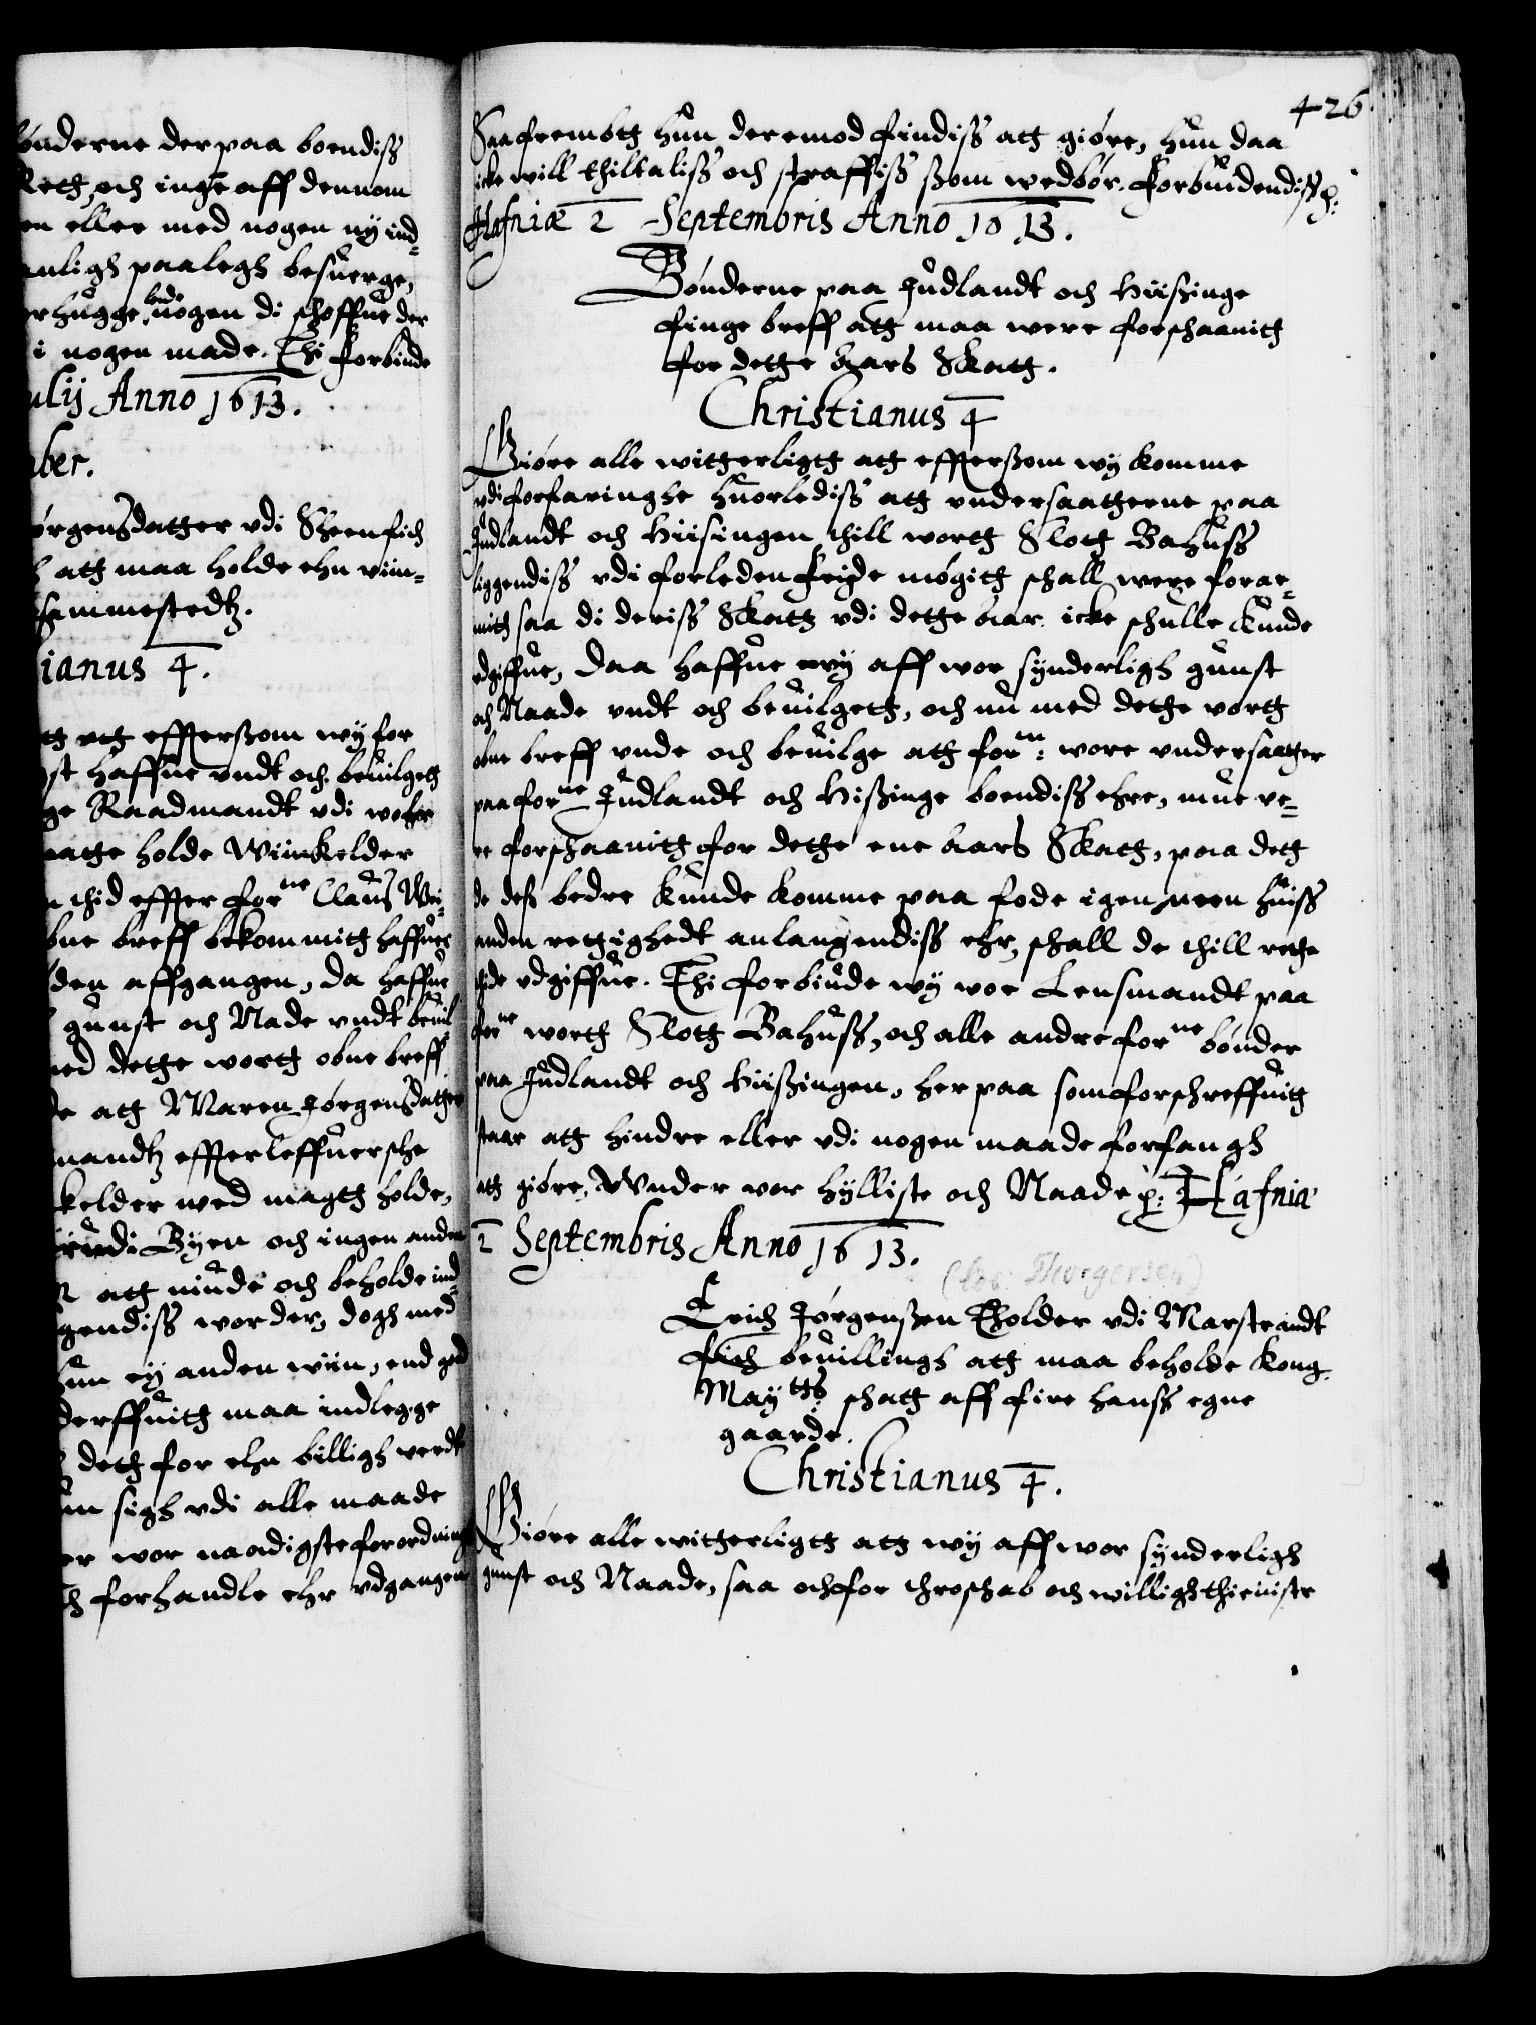 bønderne der paa boendiss
Reth, och inge aff dennom
en eller med nogen ny ind-
anligh paalegh besuerge,
rhugge lade nogen di schoffue der
i nogen made. Thi forbinde
ulij Anno 1613.
ber.
ørgensdatther vdi Steenfich
att maa holde ehn viin-
sammestedtz.
ianus 4.
att effterssom wy for
st haffue vndt och beuilgeth
ge Raadmandt vdi wor
maatte holde Wiinkelder
n thid effter forne Claus Wei-
bne breff bekommith haffuer
den affgangen, da haffue
gunst och Nade vndt beuil
med dette worth obne breff
de att Maren Jørgensdatther
mandtz effterleffuersche
kelder wed magtt holde,
vdi Byen och ingen anden
att niude och beholde ind-
gendiss worder, dogh med
hun ey anden wiin, end god
derffuith maa indlegge
deth for ehn billigh verdt
um sigh vdi alle maade
er wor naadigste forordning
forhandle ehr vdgangen
426
Saafrembtt hun deremod findiss att giøre, hun daa
icke will thiltaliss och straffiss ssom wedbør. Forbiudendiss p:
Hafniæ 2 Septembris Anno 1613.
Bønderne paa Judlandt och Hiissinge
finge breff att maa were forschaanith
for dette Aars Skatt.
Christianus 4
Giøre alle witterligtt att effterssom wy komme
vdi forfaringhe huorlediss att vndersaatterne paa
Judlandt och Hiisingen thill worth Slott Bahuss
liggendiss vdi forleden Feide møgith schall were forar-
mith saa di deriss Skatt vdi dette aar icke schulle kunde
vdgiffue, daa haffue wy aff wor synderligh gunst
och Naade vndt och beuilgeth, och nu med dette vorth
obne breff vnde och beuilge att forne: wore vndersaatter
paa forne Judlandt och Hissinge boendiss ehre, mue ve-
re forschaanith for dette ene aars Skatt, paa deth
de dess bedre kunde komme paa fode igen, men huiss
anden rettighedt anlangendiss ehr, schall de thill rette
thide vdgiffue. Thi forbiude wy wor Lensmandt paa
forne worth Slott Bahuss, och alle andre forne bønder
paa Judlandt och Hiissingen, her paa som forschreffuith
staar att hindre eller vdi nogen maade forfangh
att giøre, Wnder vor hylliste och Naade p: Hafniæ
2 Septembris Anno 1613.
(Thorgersen)
Erich Jørgenssen Tholder vdi Marstrandt
fich beuillingh att maa beholde Kong.
Maytts schatt aff fire hanss egne
gaarde.
Christianus 4.
Giøre alle witterligtt att wy aff wor synderligh
gunst och Naade, saa och for throschab och willigh thieniste